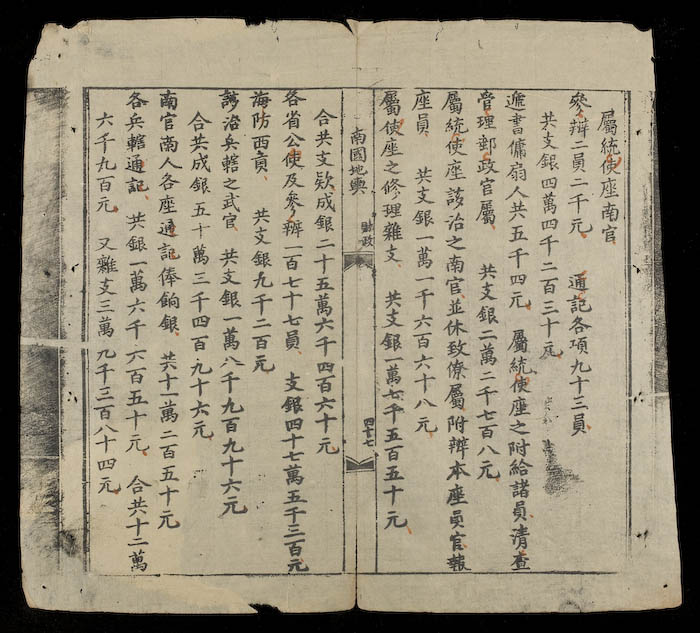 屬統使座南官
參辦二員二千元 通記各項九十三員
共支銀四萬四千二百三十元
遞書傭扇人共五千四元 屬統使座之附給諸員清查
管理郵政官屬 共支銀二萬二千七百八元
屬統使座諺治之南官並休致僚屬附辦本座員官報
座員 共支銀一萬一千六百六十八元
屬使座之修理雜支 共支銀一萬七千五百五十元
南國地輿 財政 四十七
合共支欵成銀二十五萬六千四百六十元
各省公使及參辦一百七十七員 支銀四十七萬五千三百元
海防西員 共支銀九千二百元
諺治兵轄之武官 共支銀一萬八千九百九十六元
合共成銀五十萬三千四百九十六元
南官南人各座通記俸餉銀 共十一萬二百五十元
各兵轄通記 共銀一萬六千六百五十元 合共十二萬
六千九百元 又雜支三萬九千三百八十四元